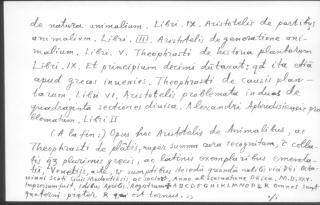 de natura animalium. Libri. IX. Aristotelis de partibus
animalium. Libri. III. Aristotelis de generatione ani-
malium. Libri. V. Theophrasti de historia plantarum
Libri. IX. Et principium decimi duntaxat; qd ita etiã
apud grecos invenies. Theophrasti de causis plan-
tarum. Libri VI. Aristotelis problemata in duas de
quadraginta sectiones divisa. Alexandri Aphrodisiensis pro
blematum. Libri II
(A la fin:) Opus hoc Aristotelis de Animalibus, ac
Theophrasti de platis, nuper summa cura recognitum, & colla-
tis plurimis grecis, ac latinis exemplaribus emenda-
Venetiis, sumptibus Heredũ quondã nobilis viri Octa-
viani Scoti Modoetiesis ac socior. Anno
impressum fuit. Idibus Aprilis. Registrum A B C D E F G H I K L M N O P Q R Omnes sunt
quaterni preter R qui est ternus.